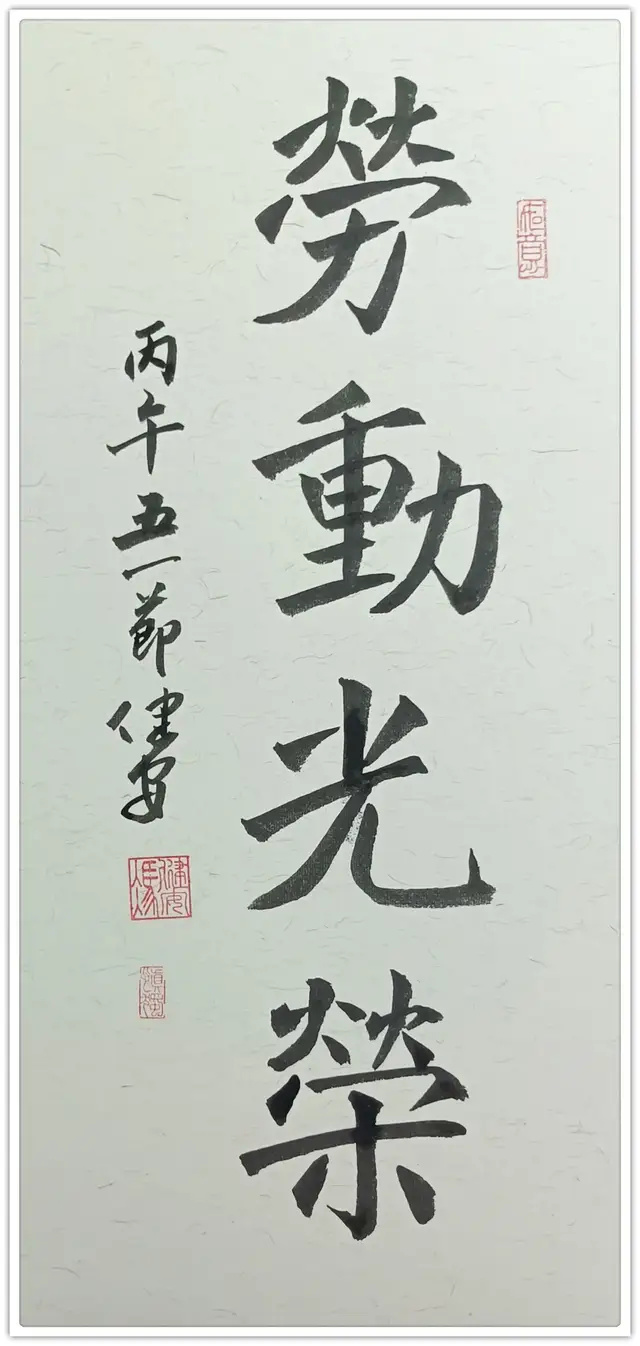 勞動光榮
丙午五一節健安